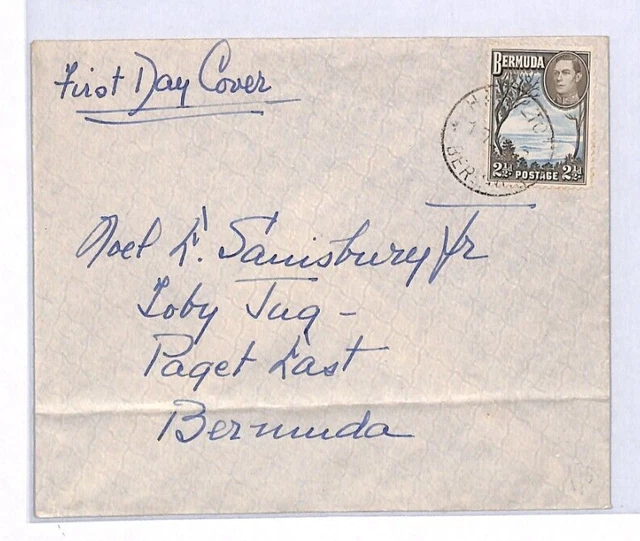 First Day Cover
BERMUDA
2½d POSTAGE 2½d
Noel E. Sainsbury Jr
Toby Jug -
Paget East
Bermuda